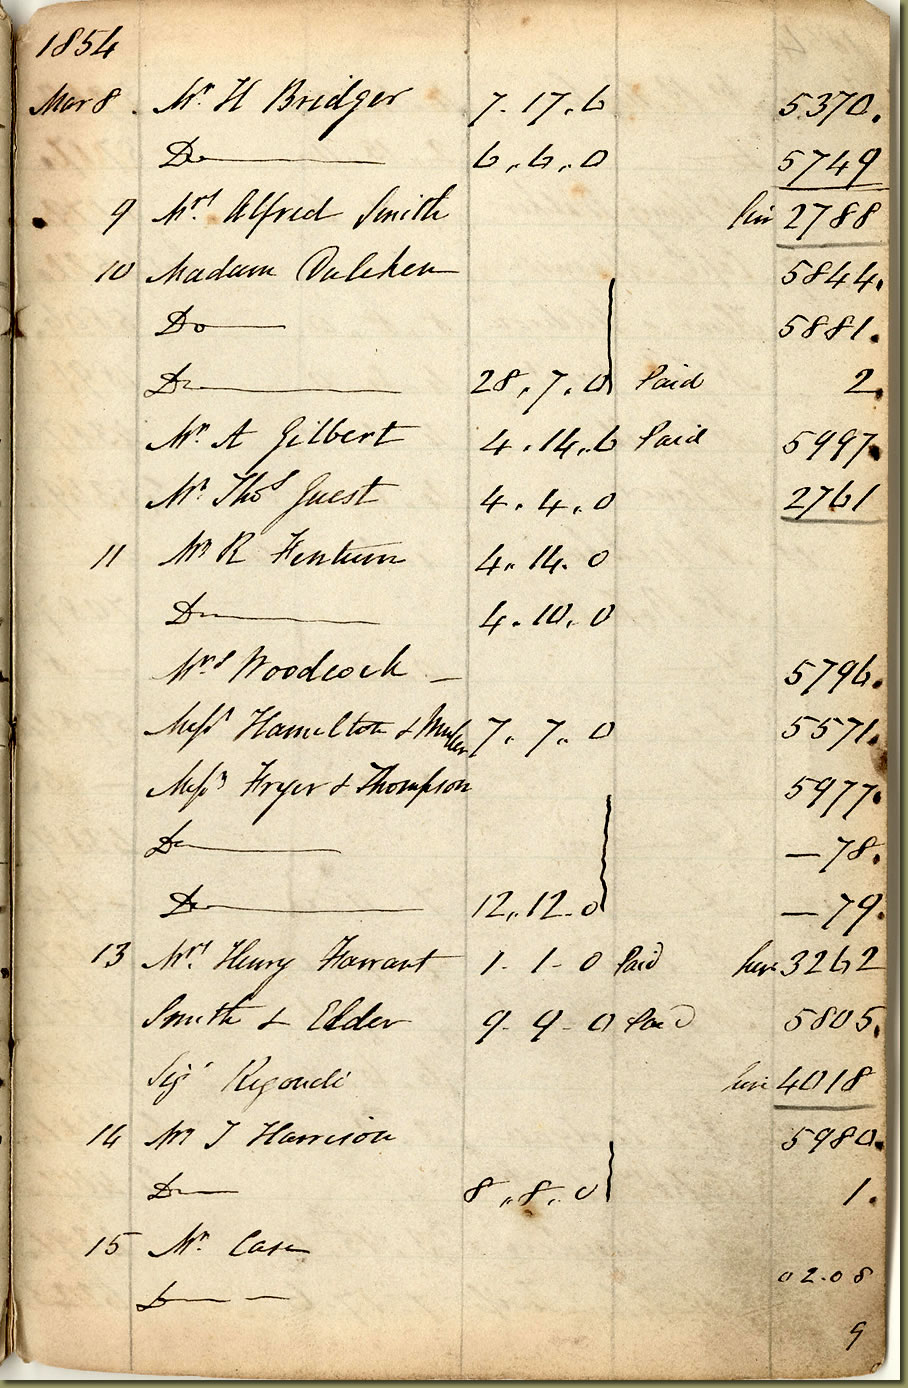 1854
Mar 8. Mr. H Bridger 7. 17. 6 5370.
Do 6. 6. 0 5749
9 Mrs Alfred Smith hire 2788
10 Madam Dulcken 5844.
Do 5881.
Do 28. 7. 0 Paid 2.
Mr. A Gilbert 4. 14. 6 Paid 5997.
Mr. Thos Guest 4. 4. 0 2761
11 Mr R Fentum 4. 14. 0
Do 4. 10. 0
Mrs Woodcock — 5796.
Messrs Hamilton & 7. 7. 0 5571.
Messrs Fryer & Thompson 5977.
Do — 78.
Do 12. 12. 0 — 79.
13 Mrs Henry Farrant 1. 1. 0 Paid hire 3262
Smith & Elder 9. 9. 0 Paid 5805.
Sigr Regondi hire 4018
14 Mr J Harrison 5980.
Do 8. 8. 0 1.
15 Mr. Case
02.08
Do
9